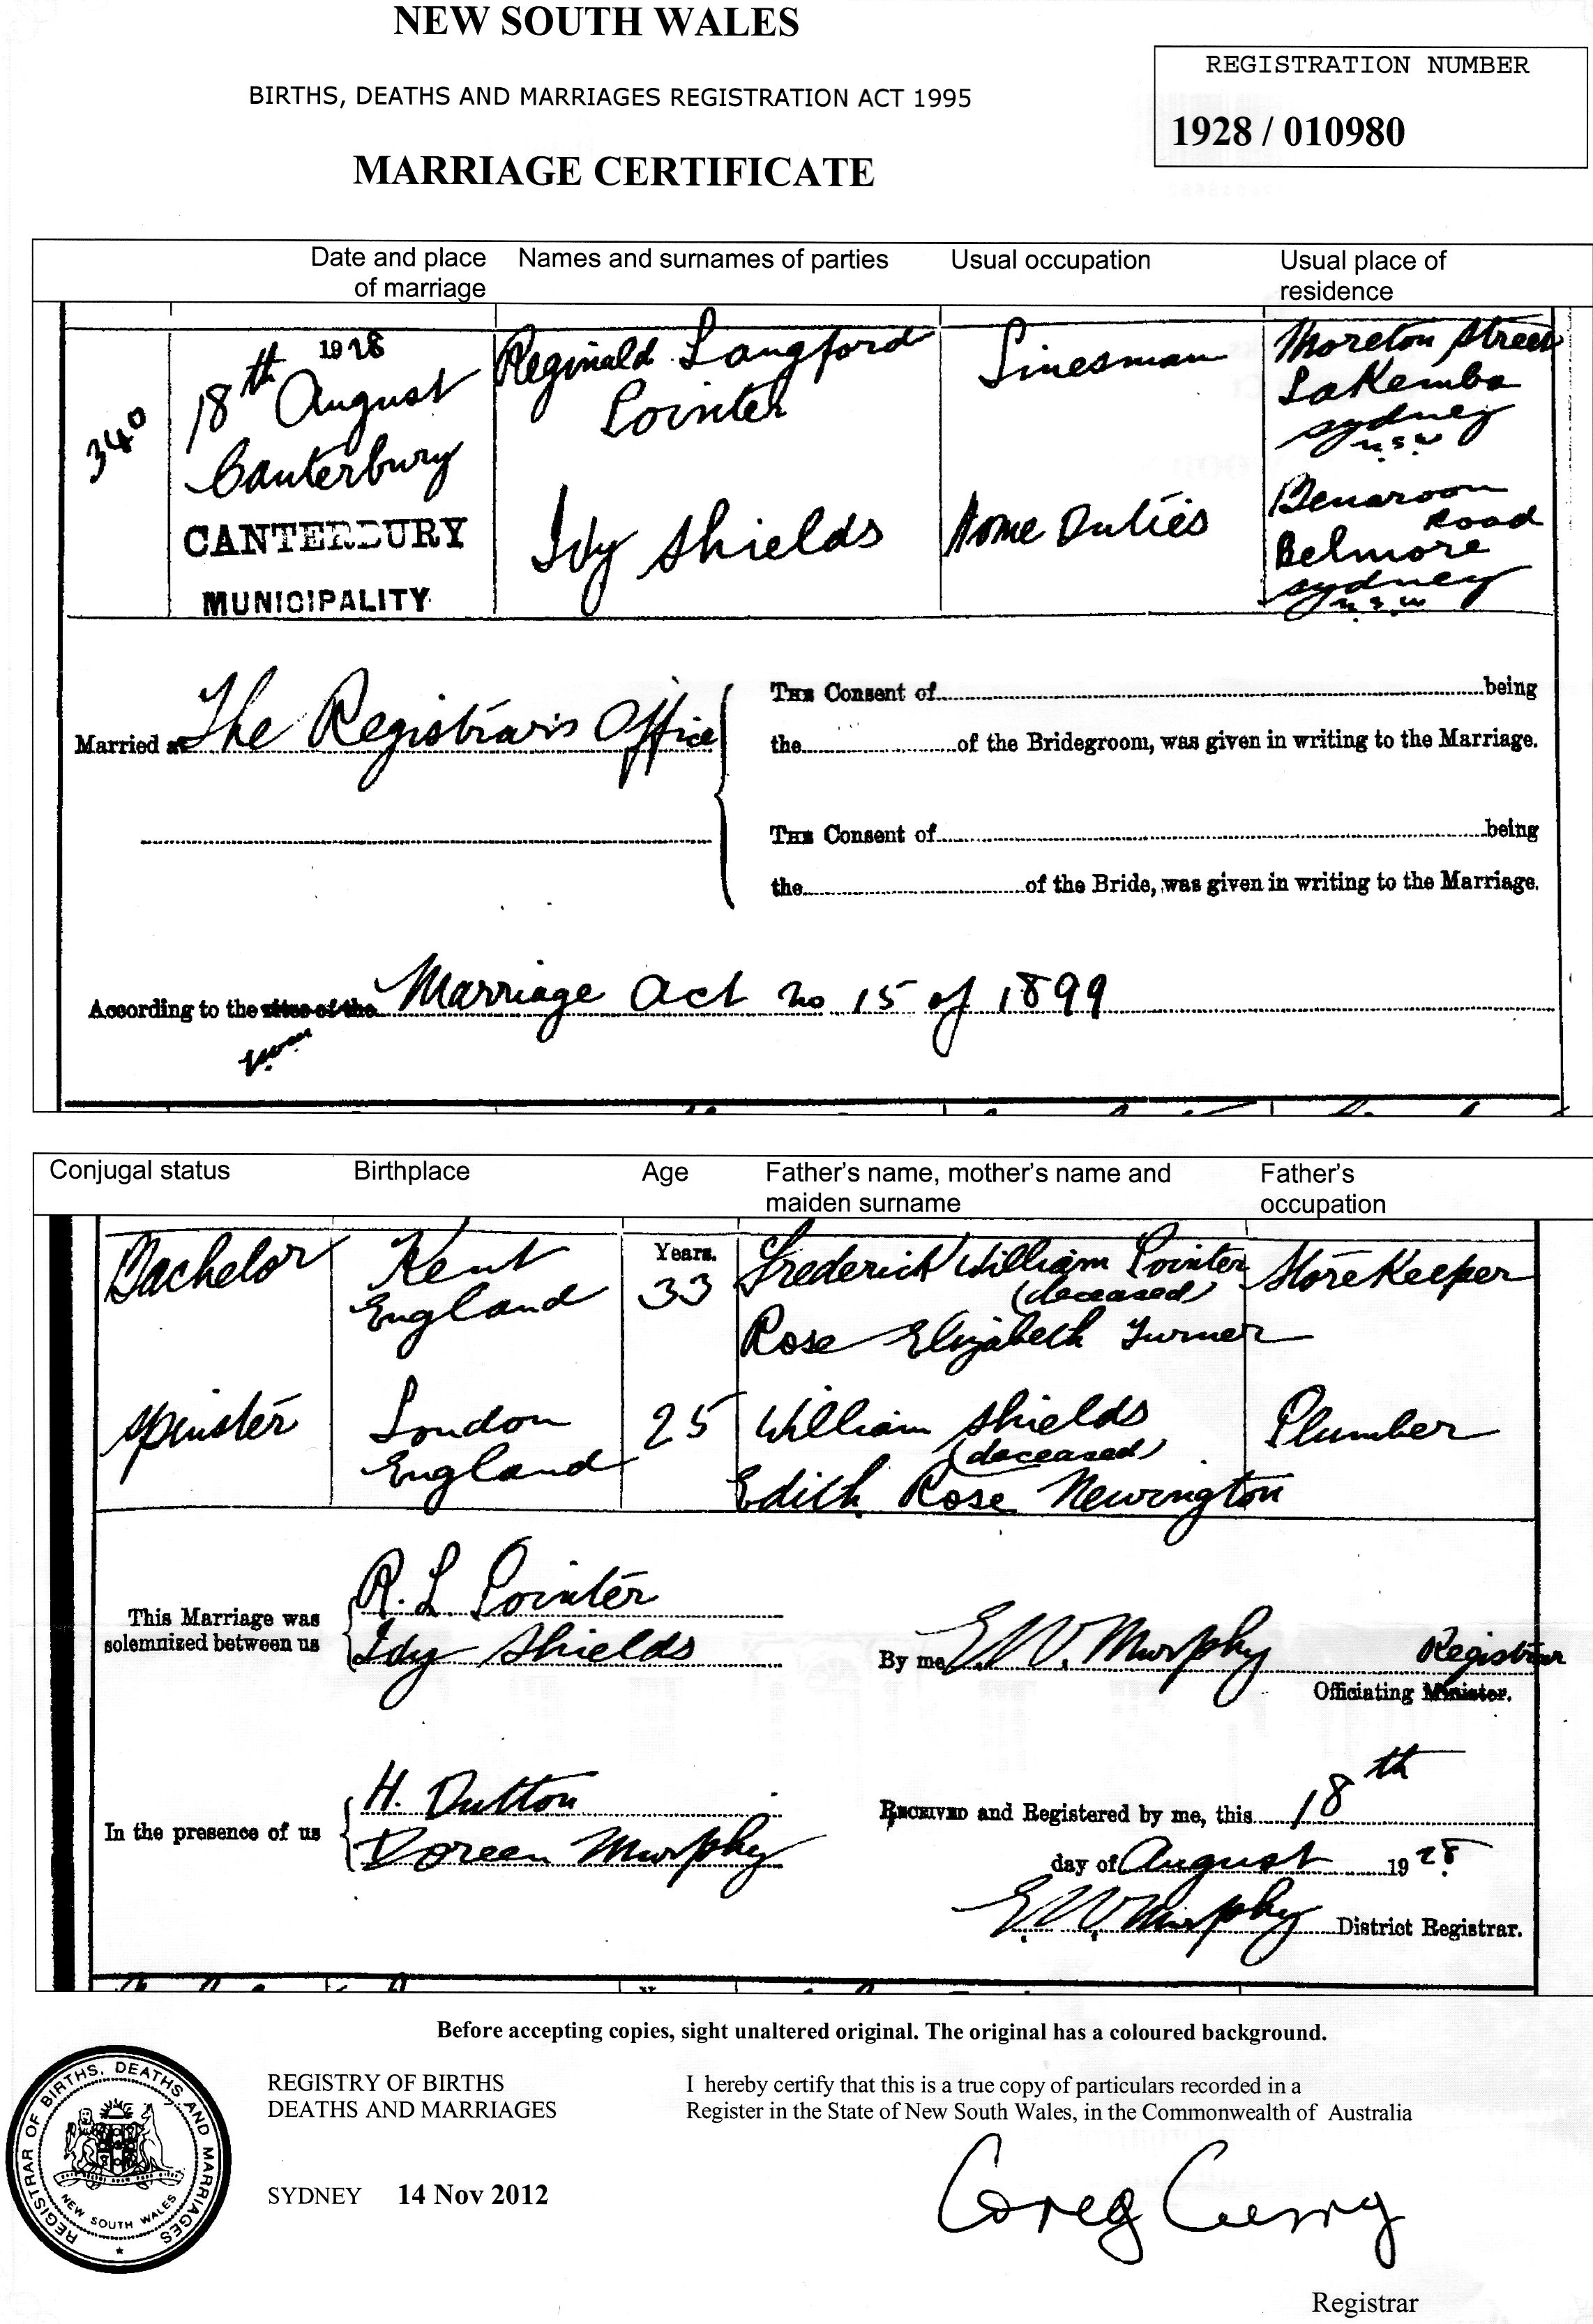 NEW SOUTH WALES
BIRTHS, DEATHS AND MARRIAGES REGISTRATION ACT 1995
MARRIAGE CERTIFICATE
REGISTRATION NUMBER
1928 / 010980
Date and place of marriage
Names and surnames of parties
Usual occupation
Usual place of residence
340
1928
18th August
Canterbury
CANTERBURY
MUNICIPALITY
Reginald Langford
Pointer
Linesman
Moreton Street
Lakemba
Sydney
N.S.W
Ivy Shields
Home Duties
Benaroon
Road
Belmore
Sydney
N.S.W
Married at The Registrar's Office
THE Consent of being
the of the Bridegroom, was given in writing to the Marriage.
THE Consent of being
the of the Bride, was given in writing to the Marriage.
According to the rites of the Marriage Act no 15 of 1899
Conjugal status
Birthplace
Age
Father's name, mother's name and maiden surname
Father's occupation
Bachelor
Kent
England
Years.
33
Frederick William Pointer
(deceased)
Rose Elizabeth Turner
Storekeeper
Spinster
London
England
25
William Shields
(deceased)
Edith Rose Newington
Plumber
This Marriage was
solemnized between us
R. L Pointer
Ivy Shields
By me E. W. Murphy Registrar
Officiating Minister.
In the presence of us
H. Dutton
Doreen Murphy
RECEIVED and Registered by me, this 18th
day of August 1928
E. W. Murphy District Registrar.
Before accepting copies, sight unaltered original. The original has a coloured background.
REGISTRAR OF BIRTHS, DEATHS AND MARRIAGES
NEW SOUTH WALES
REGISTRY OF BIRTHS
DEATHS AND MARRIAGES
SYDNEY 14 Nov 2012
I hereby certify that this is a true copy of particulars recorded in a
Register in the State of New South Wales, in the Commonwealth of Australia
Greg Curry
Registrar